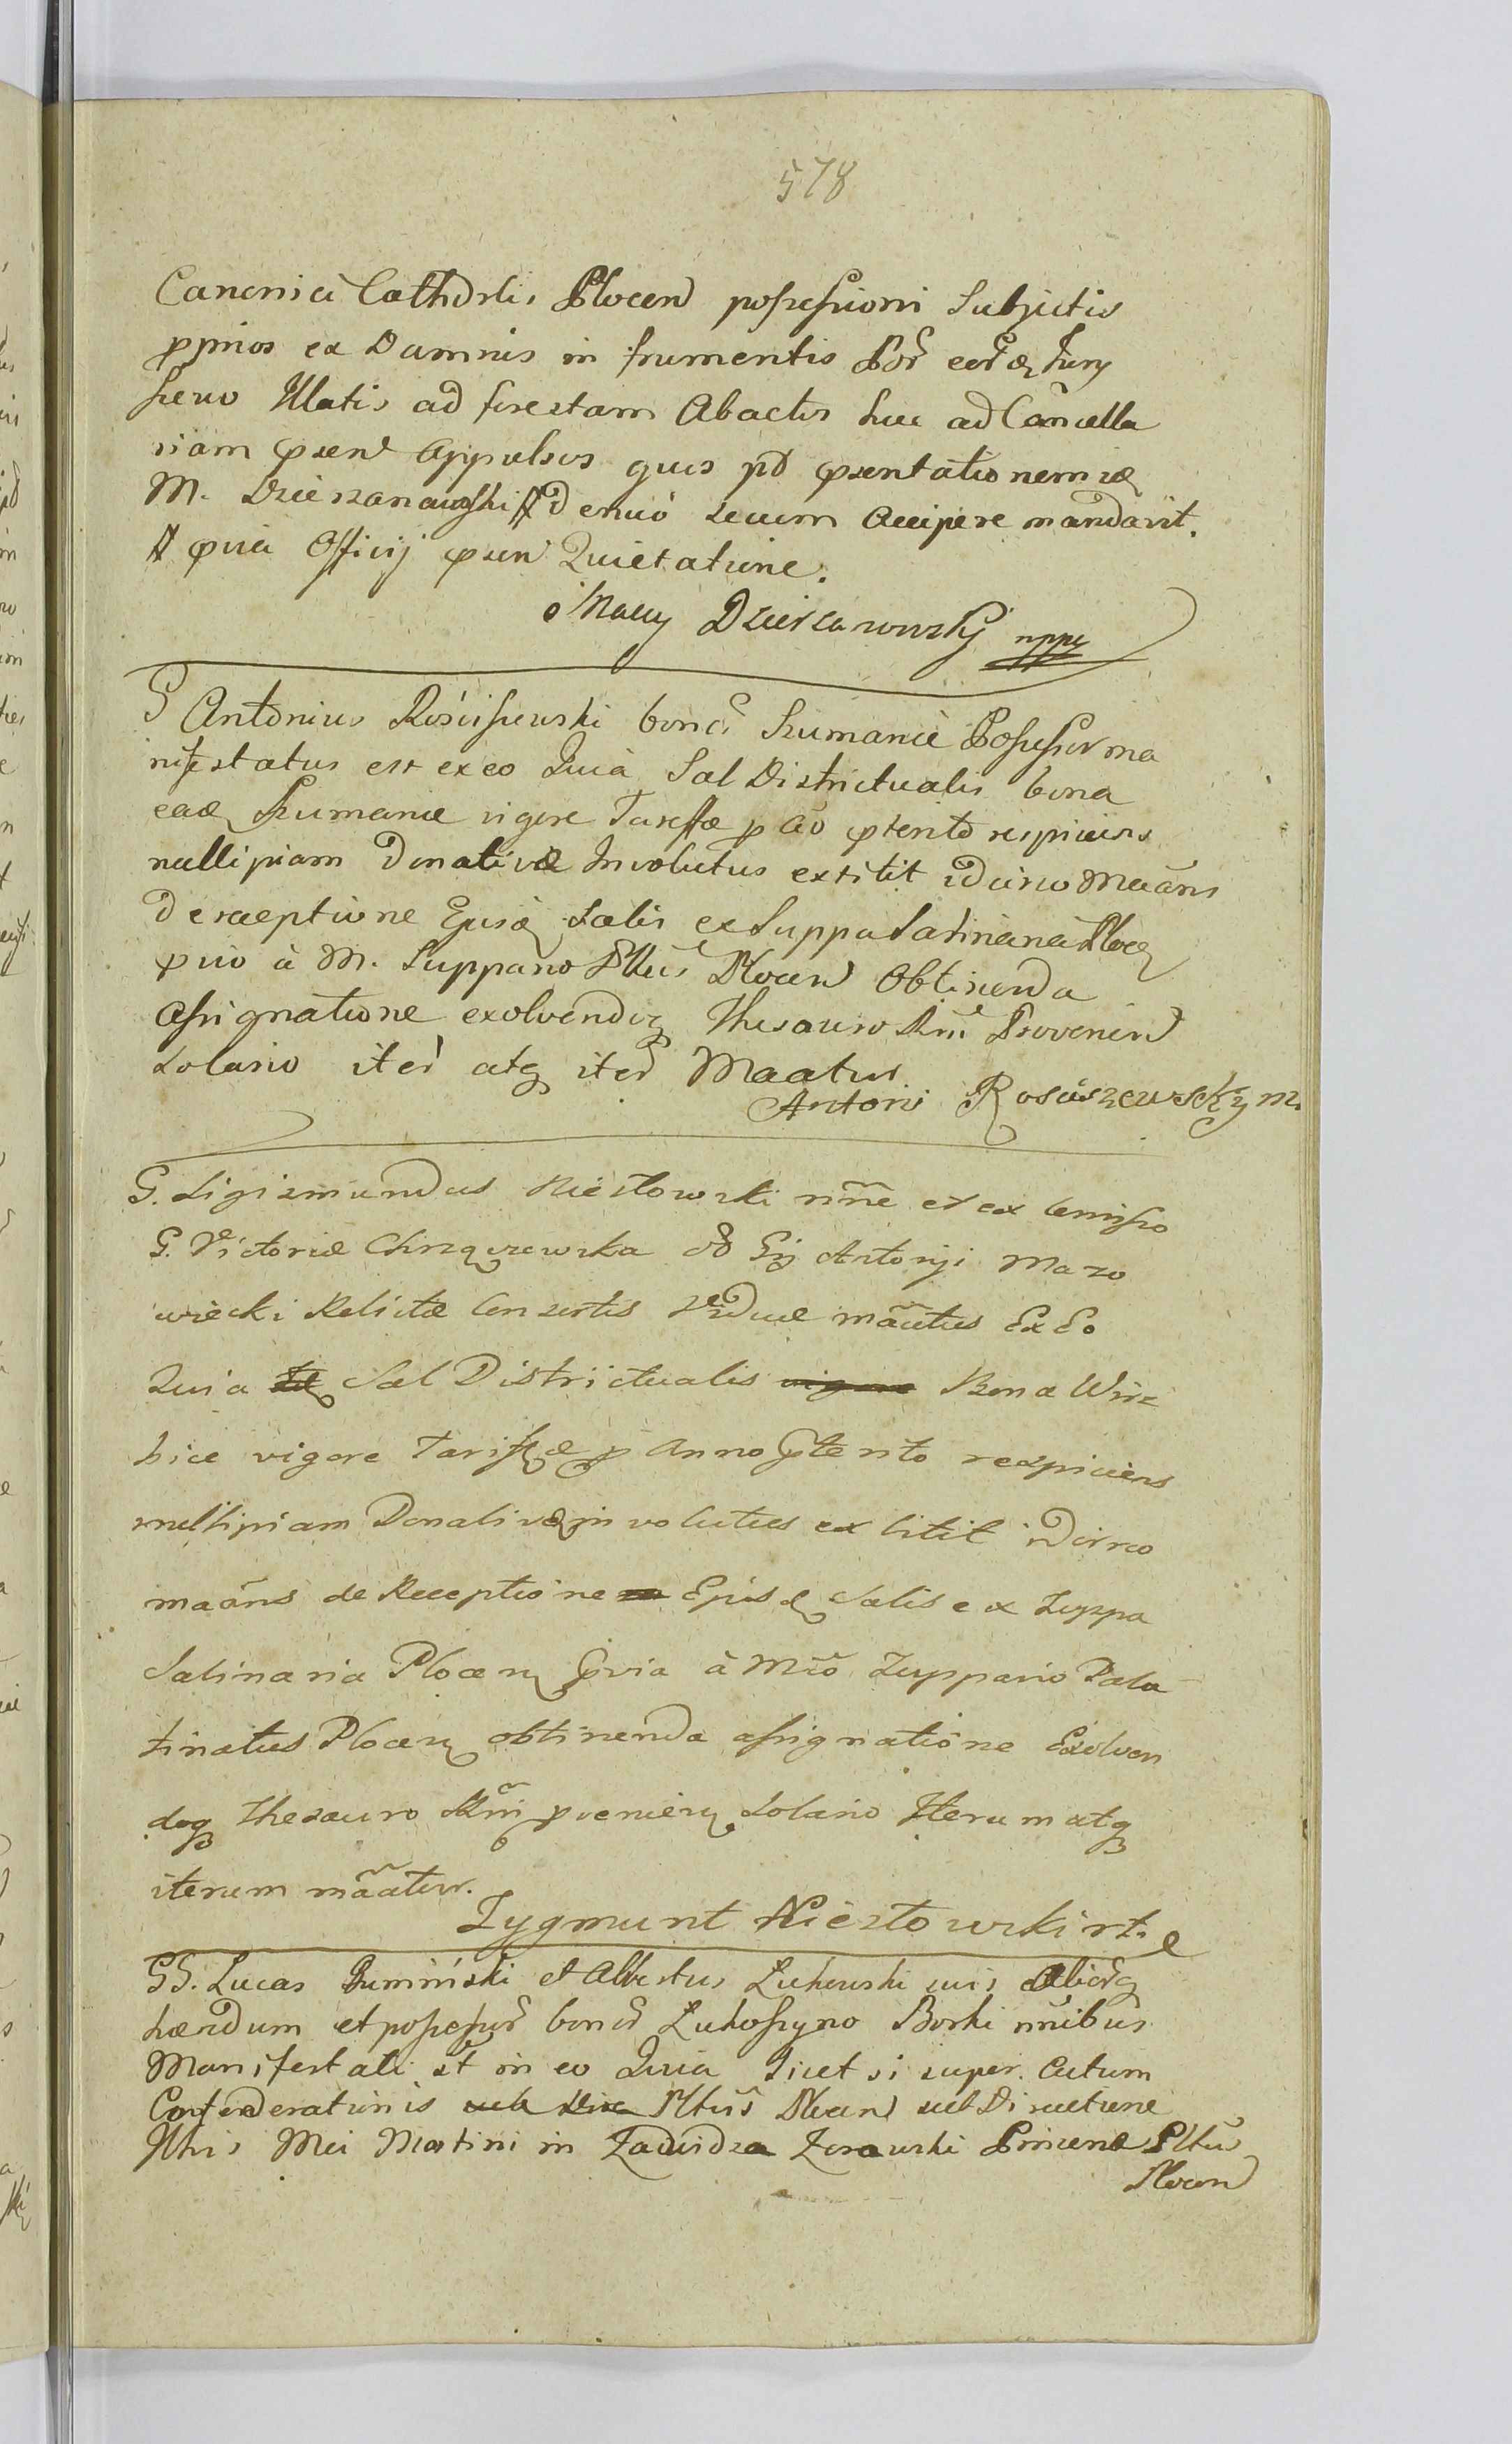 578
Canonici Cathdrlis Plocen possessioni Subjectis
pprios ex Damnis in frumentis
Illatis ad forestam Abactos huc ad Cancella
riam psen Appulsos quos pd psentationem
M. Dzierzanowski denuo secum Accipere mandavit.
pvia Officij psen Quietatione.
Dzierzanowsky mppa
G Antonius Rościszewski bonor Szumanie Possessor ma
nifestatus est ex eo Quia Sal Districtualis bona
ead Szumanie vigore Tariffæ p Ao ptento respiciens
nullipiam Donativæ Involutus extitit idcirco Maans
De receptione Ejusd Salis ex Suppa Salinaria Plocen
pvio à M. Suppario Pltus Plocen Obtinenda
Assignatione exolvendoq Thesauro Rni Provenien
Solario iter atq iter Maatur.
Antoni Rosciszewsky m.
G. Sigismundus Niestowski nne et ex Comisso
G. Victoriæ Chrząszewska od Gsi Antonji Mazo
wiecki Relictæ Consortis Viduæ mãatus Ex Eo
Quia Sal Districtualis Bona Wirz
bice vigore Tariffæ p Anno ptento respiciens
nullipiam Donativæ involutus extitit idcirco
maans de Receptione Ejusd Salis ex Zuppa
Salinaria Plocen pvia à Mco Zuppario Pala
tinatus Plocen obtinenda assignatione Exolven
doq Thesauro Rni pvenien Solario Iterum atq
iterum mãatur.
Zygmunt Niestowski
GG. Lucas Rumiński et Albertus Zukowski suis Aliorq
hærdum et possessor bonor Zukoszyno Borki nnibus
Manifestati st in eo Quia licet si super Actum
Confederationis Pltus Plocen sub Directione
Mci Martini in Zawidza Zorawski Pincernæ Pltus
Plocen